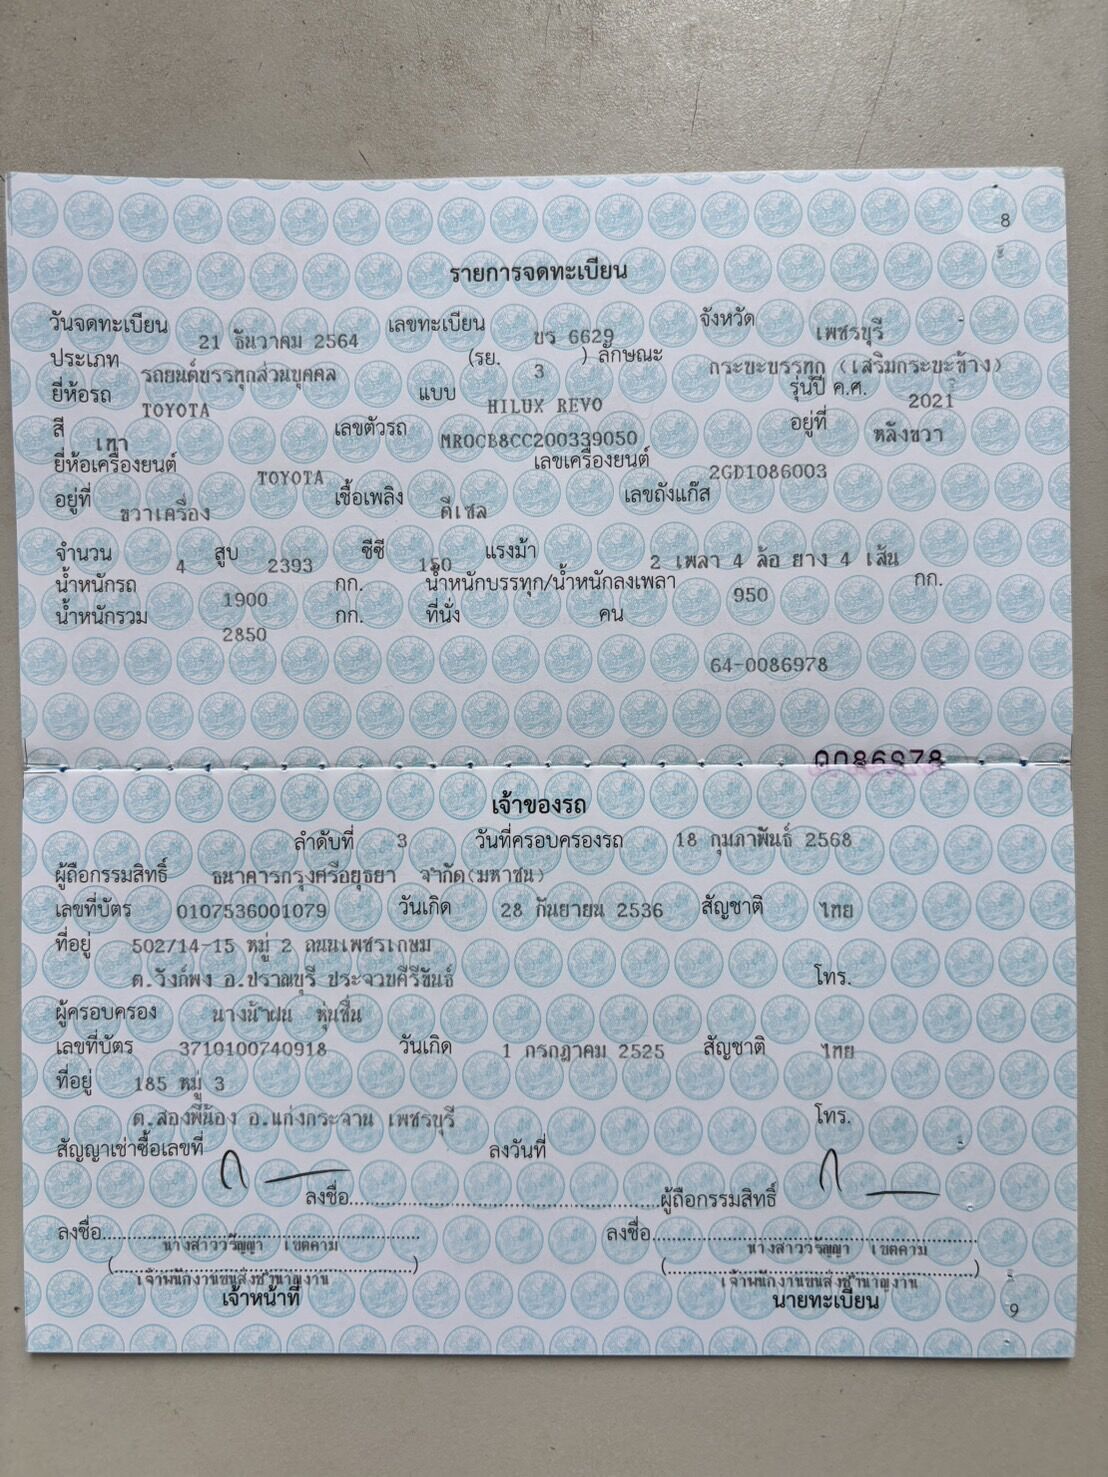 8
รายการจดทะเบียน
วันจดทะเบียน 21 ธันวาคม 2564 เลขทะเบียน บร 6629 จังหวัด เพชรบุรี
ประเภท รถยนต์บรรทุกส่วนบุคคล (รย. 3 ) ลักษณะ กระบะบรรทุก (เสริมกระบะข้าง)
ยี่ห้อรถ TOYOTA แบบ HILUX REVO รุ่นปี ค.ศ. 2021
สี เทา เลขตัวรถ MR0CB8CC200339050 อยู่ที่ หลังขวา
ยี่ห้อเครื่องยนต์ TOYOTA เลขเครื่องยนต์ 2GD1086003
อยู่ที่ ขวาเครื่อง เชื้อเพลิง ดีเซล เลขถังแก๊ส
จำนวน 4 สูบ 2393 ซีซี 150 แรงม้า 2 เพลา 4 ล้อ ยาง 4 เส้น
น้ำหนักรถ 1900 กก. น้ำหนักบรรทุก/น้ำหนักลงเพลา 950 กก.
น้ำหนักรวม 2850 กก. ที่นั่ง คน
64-0086978
0086978
เจ้าของรถ
ลำดับที่ 3 วันที่ครอบครองรถ 18 กุมภาพันธ์ 2568
ผู้ถือกรรมสิทธิ์ ธนาคารกรุงศรีอยุธยา จำกัด(มหาชน)
เลขที่บัตร 0107536001079 วันเกิด 28 กันยายน 2536 สัญชาติ ไทย
ที่อยู่ 502/14-15 หมู่ 2 ถนนเพชรเกษม
ต.วังก์พง อ.ปราณบุรี ประจวบคีรีขันธ์ โทร.
ผู้ครอบครอง นางน้ำฝน หุ่นชื่น
เลขที่บัตร 3710100740918 วันเกิด 1 กรกฎาคม 2525 สัญชาติ ไทย
ที่อยู่ 185 หมู่ 3
ต.สองพี่น้อง อ.แก่งกระจาน เพชรบุรี โทร.
สัญญาเช่าซื้อเลขที่ ลงวันที่
ลงชื่อ ผู้ถือกรรมสิทธิ์
ลงชื่อ ลงชื่อ
นางสาววรัญญา เขตคาม นางสาววรัญญา เขตคาม
เจ้าพนักงานขนส่งชำนาญงาน เจ้าพนักงานขนส่งชำนาญงาน
เจ้าหน้าที่ นายทะเบียน
9